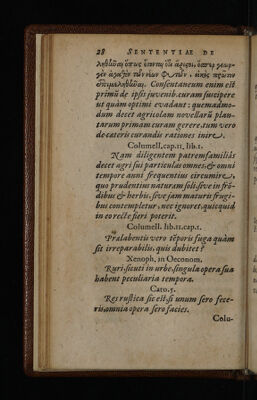 28 SENTENTIAE DE
Consentaneum enim est
primũ de ipsis juvenib. curam suscipere
ut quàm optimi evadant: quemadmo-
dum decet agricolam novellarũ plan-
tarum primam curam gerere, tum vero
de cæteris curandis rationes inire.
Columell. cap. 11. lib. 1.
Nam diligentem patremfamiliâs
decet agri sui particulas omnes, & omni
tempore anni frequentius circumire,
quo prudentius naturam soli, sive in frõ-
dibus & herbis, sive jam maturis frugi-
bus contempletur, nec ignoret, quicquid
in eo recte fieri poterit.
Columell. lib. 11. cap. 1.
Prælabentis vero tẽporis fuga quàm
sit irreparabilis, quis dubitet?
Xenoph. in Oeconom.
Ruri, sicuti in urbe, singula opera sua
habent peculiaria tempora.
Cato. 5.
Res rustica sic est, si unum sero fece-
ris, omnia opera sero facies.
Colu-